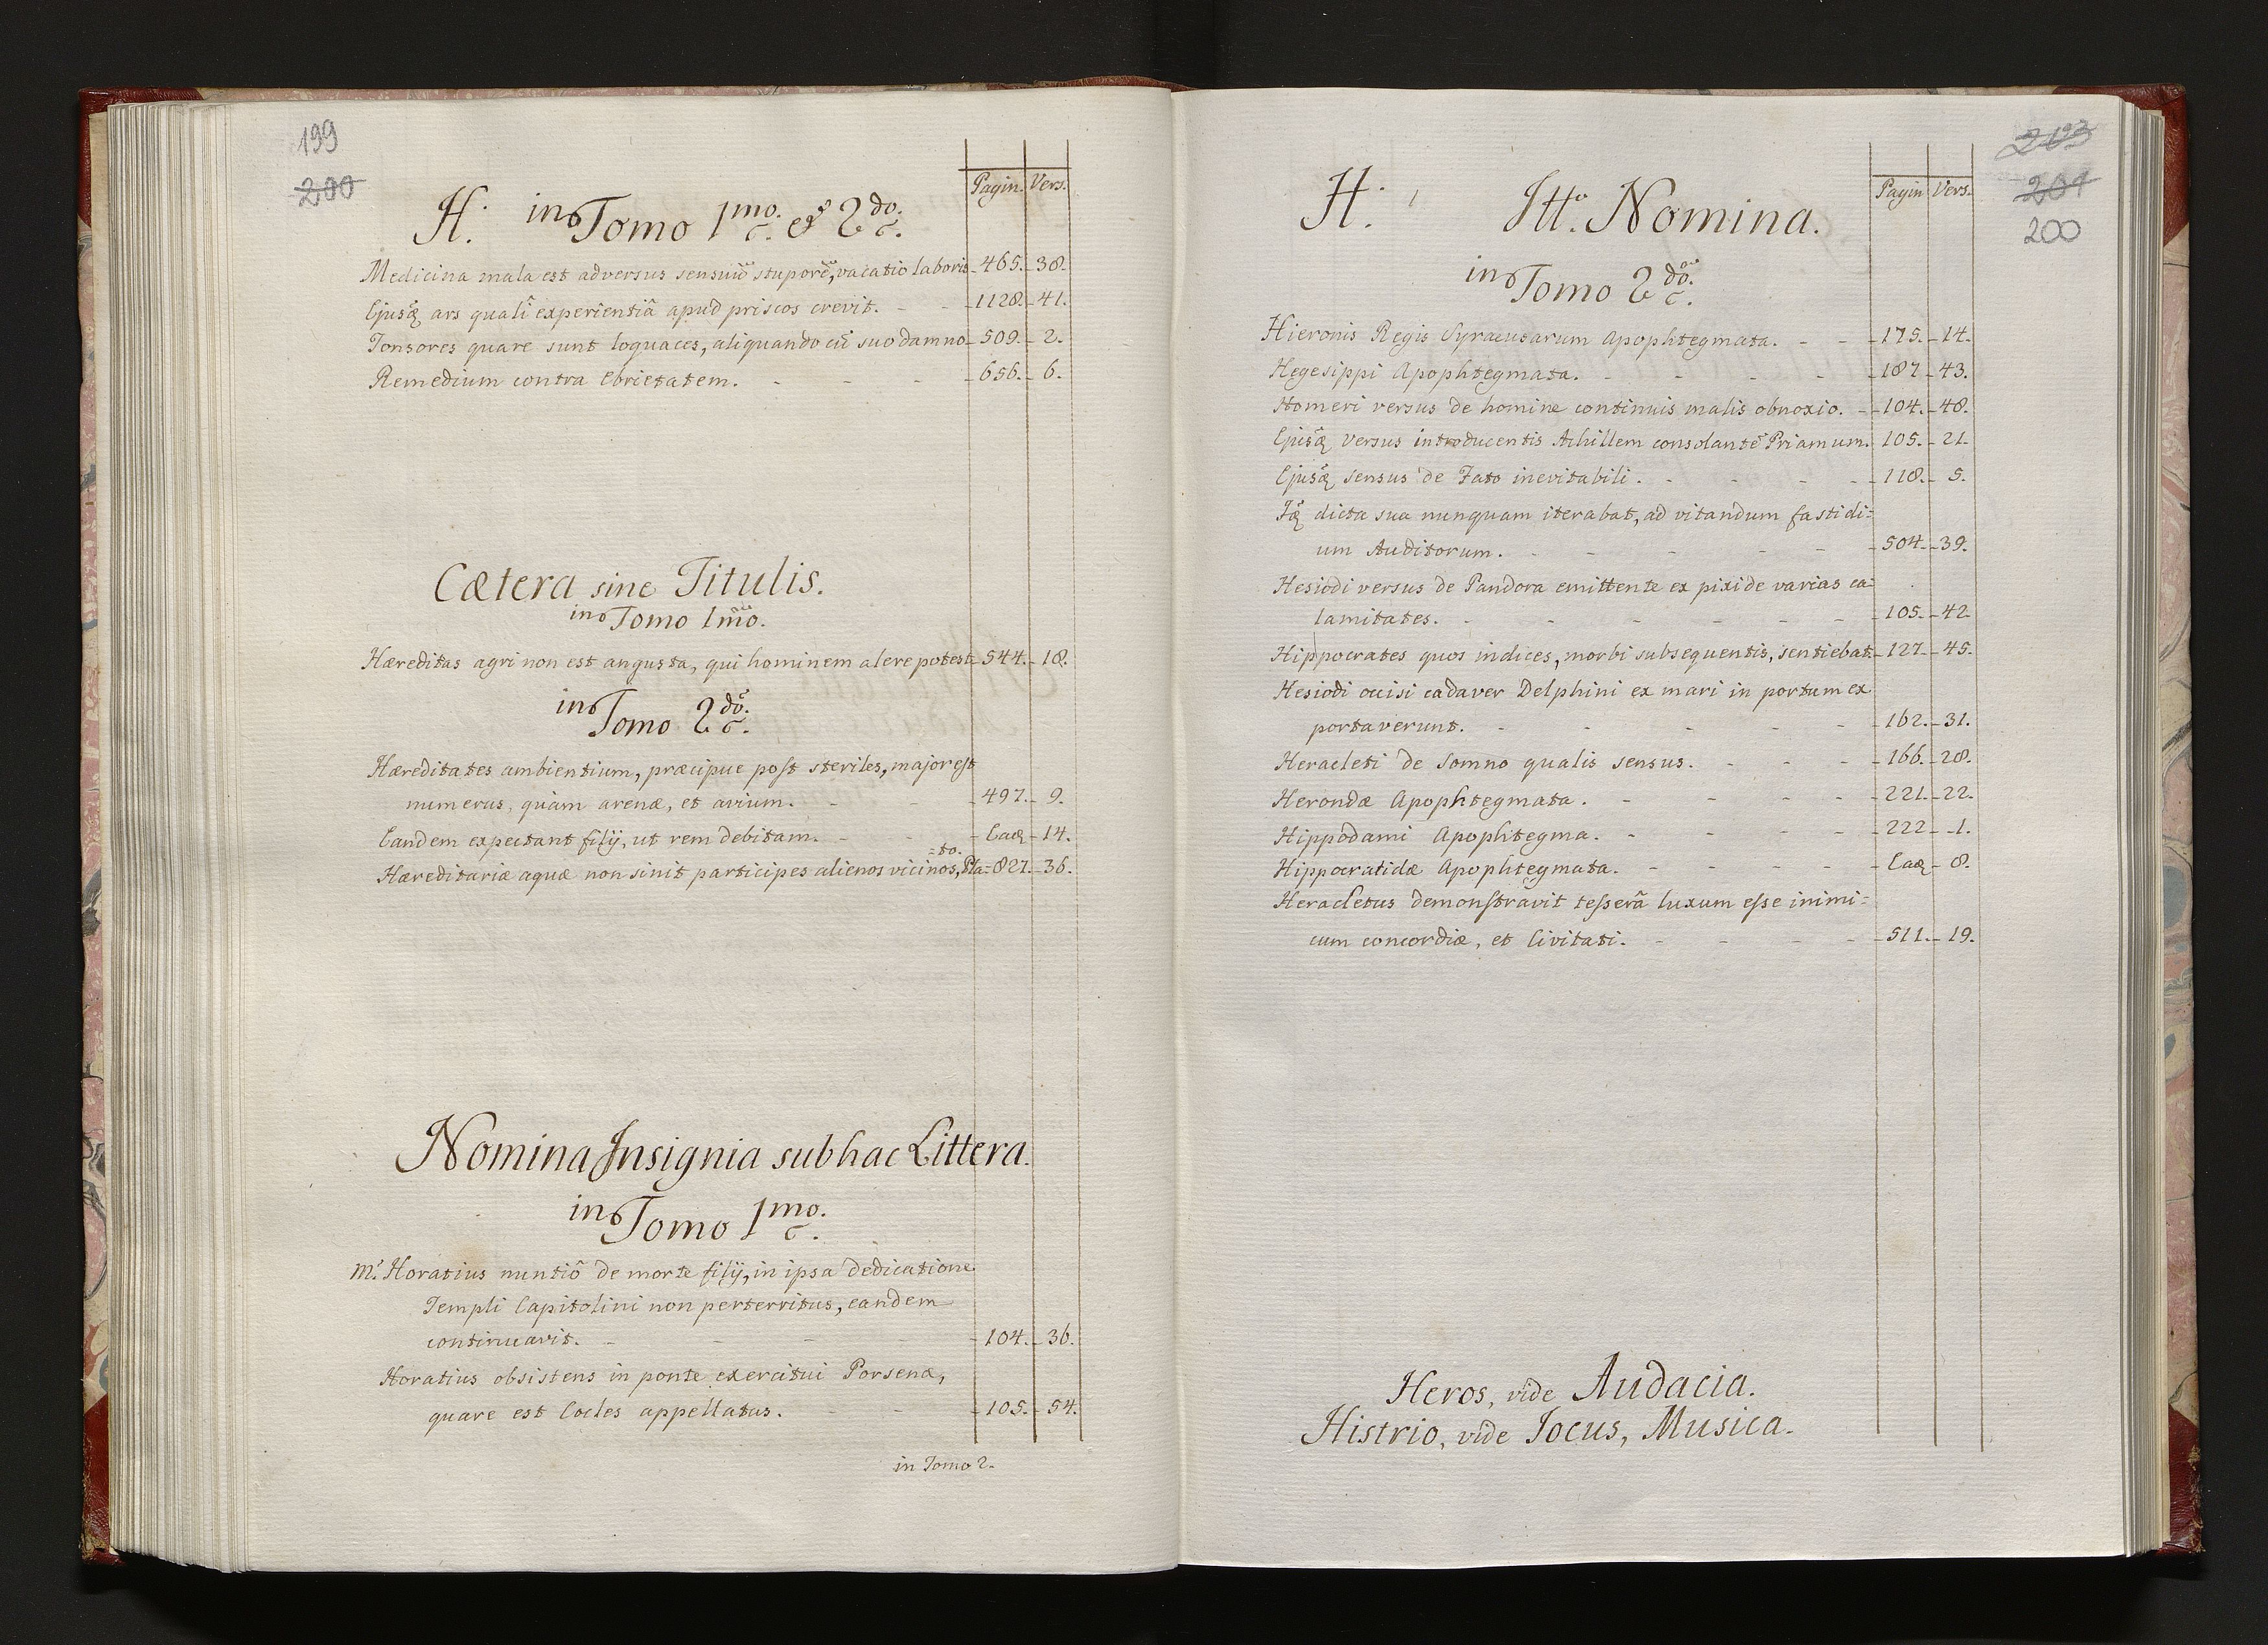 199
200
Pagin. Vers.
H. in Tomo 1mo. et 2do.
Medicina mala est adversus sensuū stuporē, vacatio laboris - 465. - 38.
Ejusq ars quali experientiâ apud priscos crevit. - - 1128. - 41.
Tonsores quare sunt loquaces, aliquando cū suo damno - 509. - 2.
Remedium contra Ebrietatem. - - - 656. - 6.
Cætera sine Titulis.
in Tomo 1mo.
Hæreditas agri non est angusta, qui hominem alere potest - 544. - 18.
in Tomo 2do.
Hæreditates ambientium, præcipue post steriles, major est
numerus, quàm arenæ, et avium. - - 497. - 9.
Eandem expectant filij, ut rem debitam. - - Eaq - 14.
=to.
Hæreditariæ aquæ non sinit participes alienos vicinos, Pla= 827. - 36.
Nomina Insignia sub hac Littera.
in Tomo 1mo.
M. Horatius nuntiô de morte filij, in ipsa dedicatione
Templi Capitolini non perterritus, eandem
continuavit. - - - 104. - 36.
Horatius obsistens in ponte exercitui Porsenæ,
quare est Cocles appellatus. - - 105. - 54.
in Tomo 2.
203
201
200
Pagin Vers.
H. Itt. Nomina.
in Tomo 2do.
Hieronis Regis Syracusarum Apophtegmata. - - 175. - 14.
Hegesippi Apophtegmata. - - - - 187 - 43.
Homeri versus de homine continuis malis obnoxio. - 104. - 48.
Ejusq versus introducentis Achillem consolantē Priamum. 105. - 21.
Ejusq sensus de Fato inevitabili. - - - 118. - 5.
Iq dicta sua nunquam iterabat, ad vitandum fastidi=
um Auditorum. - - - - - 504. - 39.
Hesiodi versus de Pandora emittente ex pixide varias ca=
lamitates. - - - - - - 105. - 42.
Hippocrates quos indices, morbi subsequentis, sentiebat. - 127. - 45.
Hesiodi occisi cadaver Delphini ex mari in portum ex
portaverunt. - - - - - 162. - 31.
Heracleti de Somno qualis sensus. - - - 166. - 28.
Herondæ Apophtegmata. - - - - 221. - 22.
Hippodami Apophtegma. - - - - 222 - 1.
Hippocratidæ Apophtegmata. - - - - Eaq - 8.
Heracletus demonstravit tesserâ luxum esse inimi=
cum concordiæ, et Civitati. - - - - 511. - 19.
Heros, vide Audacia.
Histrio, vide Jocus, Musica.